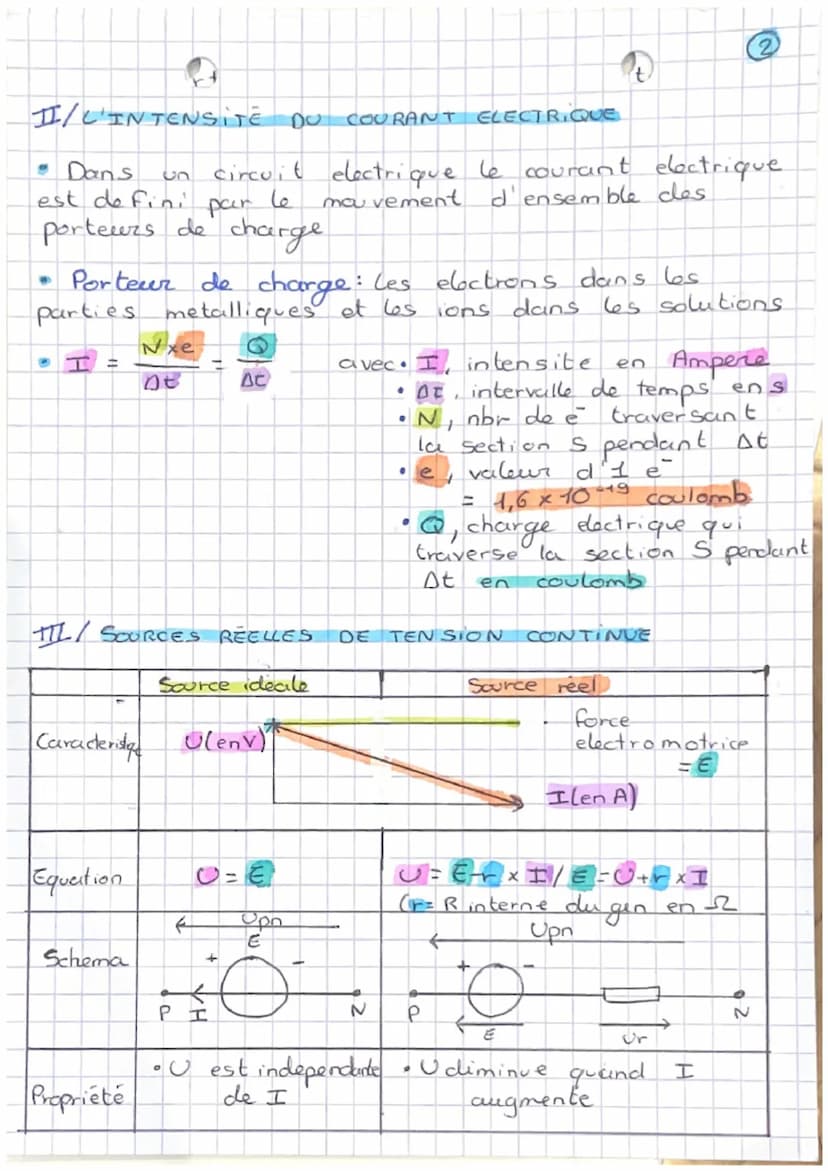 2
r+
t
II/ L'INTENSITÉ DU COURANT ELECTRIQUE
• Dans un circuit electrique le courant electrique
est defini par le mouvement d'ensemble des
porteurs de charge
• Porteur de charge : les electrons dans les
parties metalliques et les ions dans les solutions
• I = N×e / Δt = Q / Δt
avec • I, intensite en Ampere
• Δt, intervalle de temps en s
• N, nbr de e⁻ traversant
la section S pendant Δt
• e, valeur d'1 e⁻
= 1,6 × 10⁻¹⁹ coulomb
• Q, charge electrique qui
traverse la section S pendant
Δt en coulomb
III/ SOURCES RÉELLES DE TENSION CONTINUE
Source ideale Source réel
Caracteristq U(en V) • force
electromotrice
= E
I(en A)
Equation U = E U = E-r × I / E = U+r × I
(r = R interne du gen en Ω
Schema Upn Upn
E
+ - + -
P I N P N
E Ur
Propriété • U est independante • U diminue quand I
de I augmente